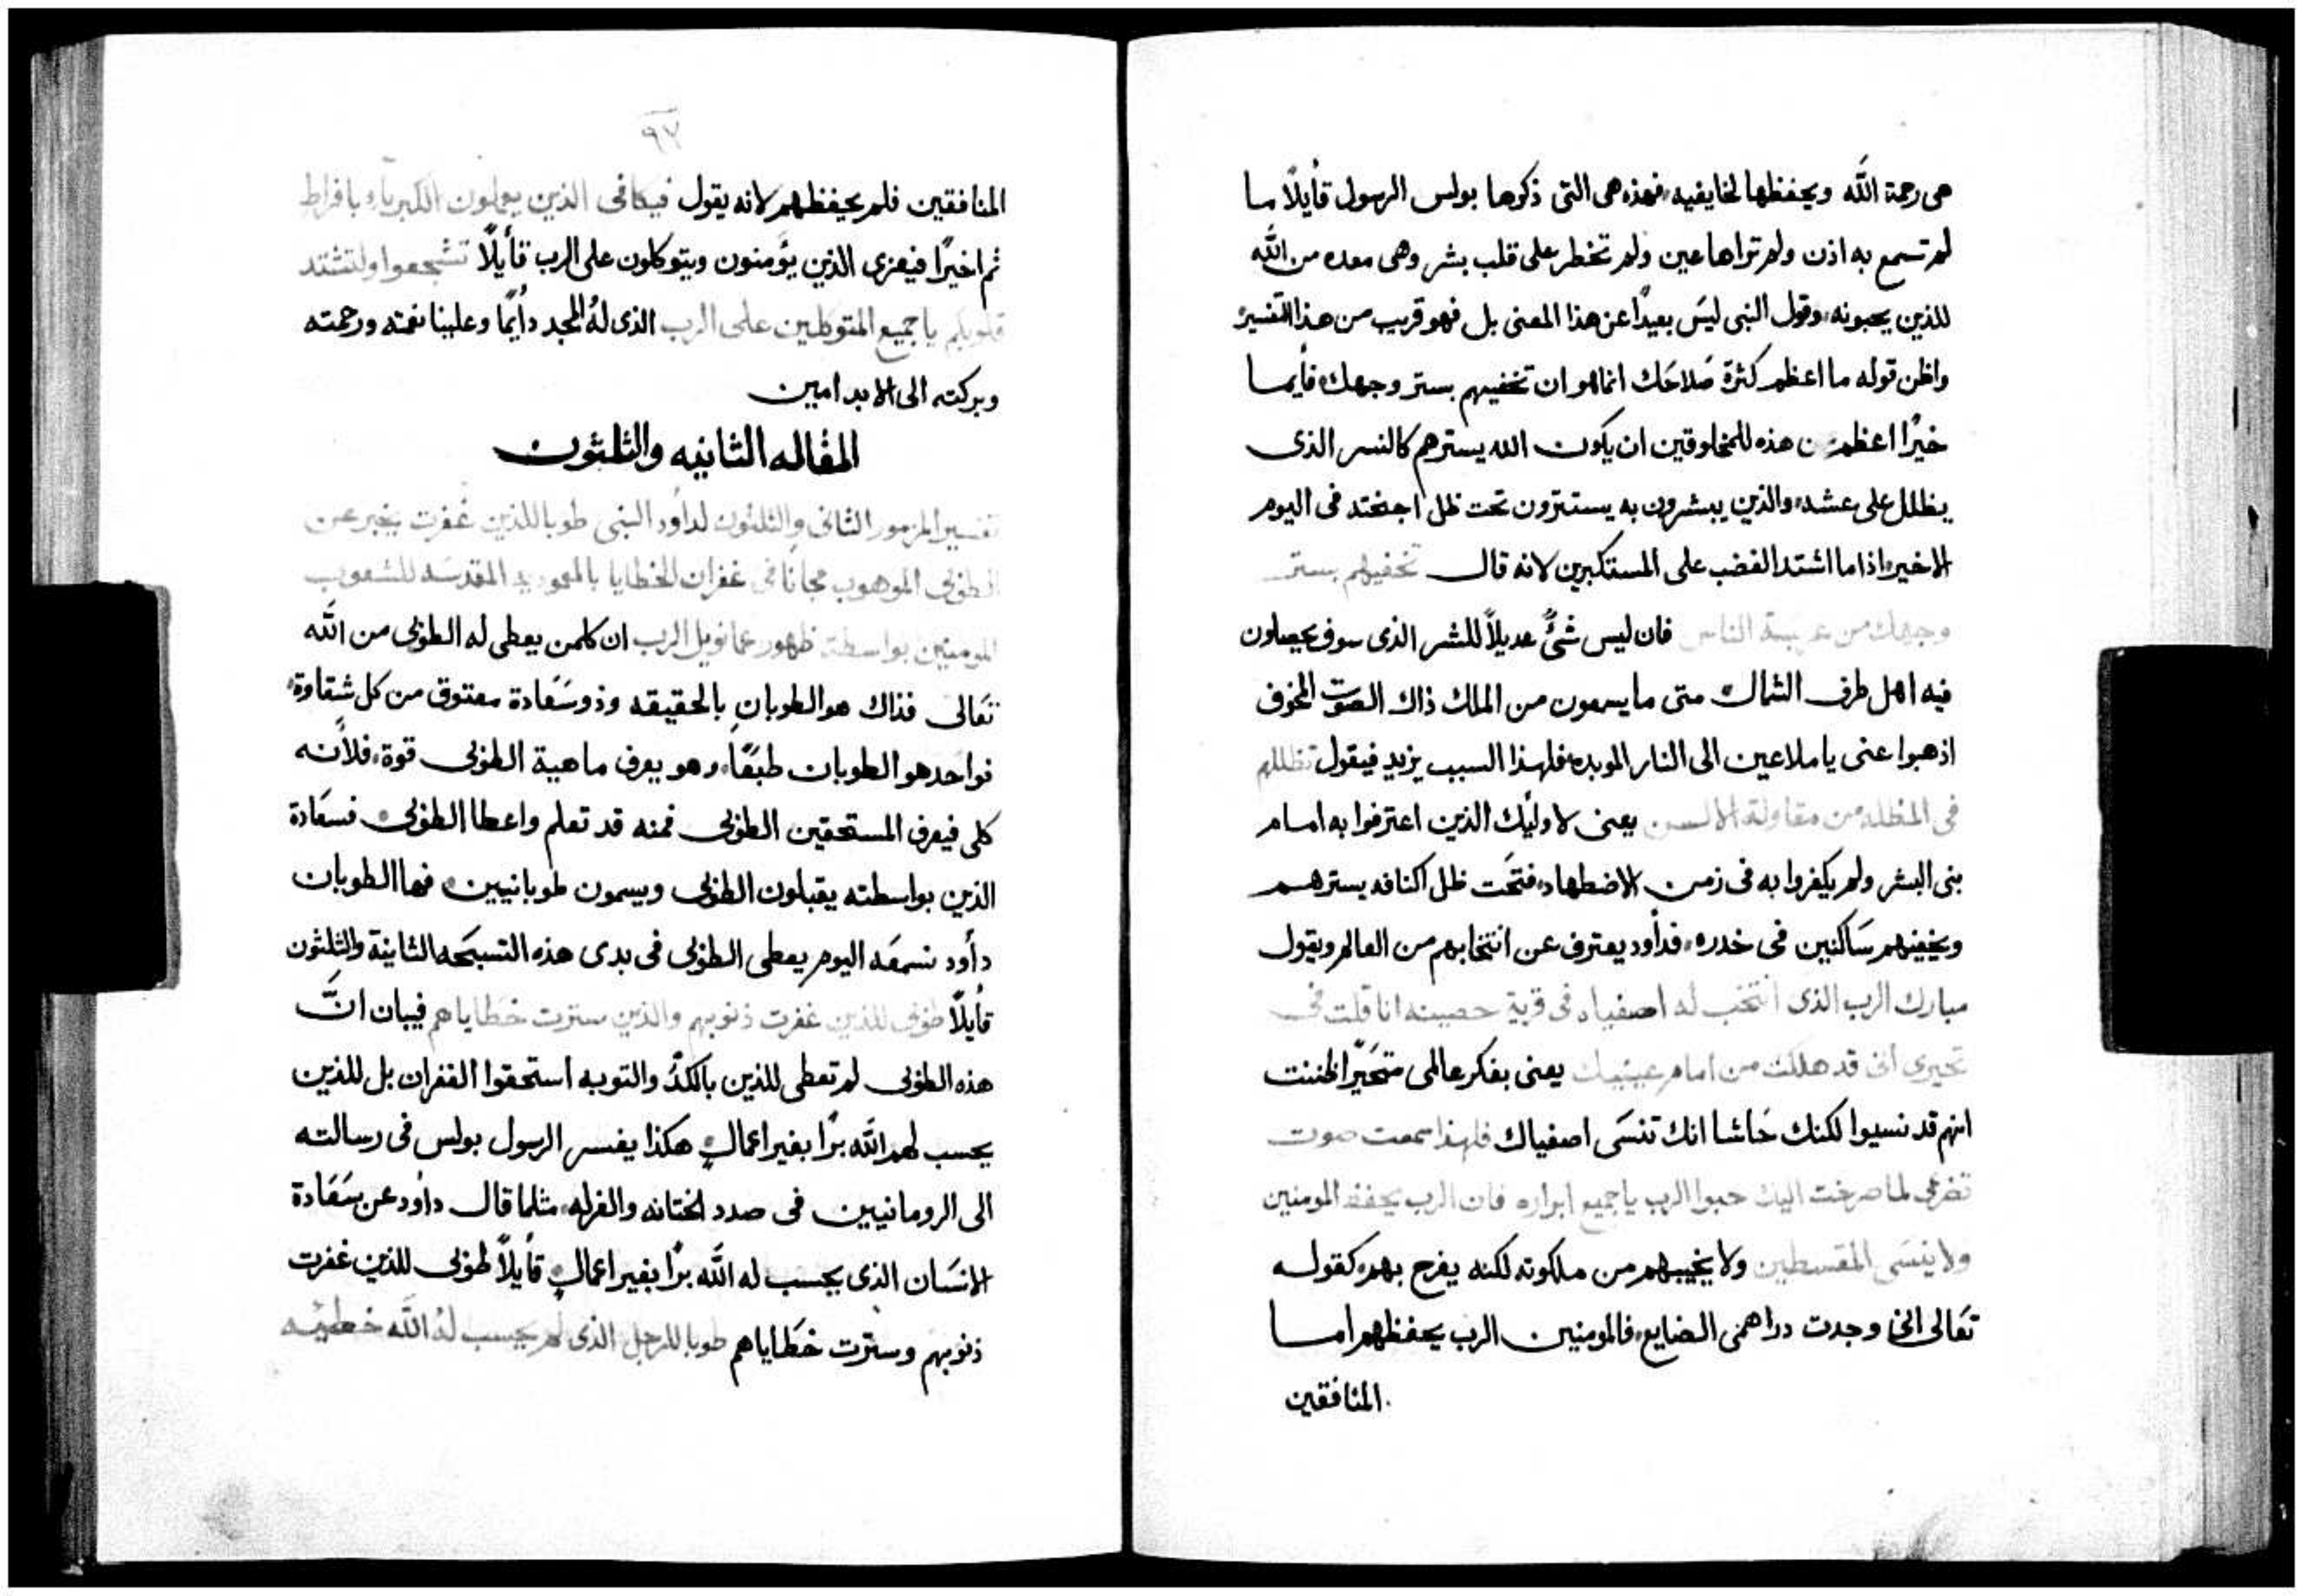 هى رحمة الله ويحفظها لخايفيه، فهذه هى التى ذكرها بولس الرسول قأيلًا ما
لم تسمع به اذن ولم تراها عين ولم تخطر على قلب بشر وهى معده من الله
للذين يحبونه، وقول النبى ليسَ بعيدًا عن هذا المعنى بل فهو قريب من هذا التفسير
واظن قوله ما اعظم كثرة صَلاحَك انما هو ان تخفيهم بستر وجهك، فأيما
خيرًا اعظم من هذه للمخلوقين ان يكون الله يسترهم كالنسر الذى
يظلل على عشه، والذين يبشرون به يستترون تحت ظل اجنحته فى اليوم
الاخير، اذا ما اشتد الغضب على المستكبرين لانه قال تخفيهم بستر
وجهك من عربسة الناس فان ليس شئٌ عديلًا للشر الذى سوف يحصلون
فيه اهل طرف الشمال، متى ما يسمعون من الملك ذاك الصوت المخوف
اذهبوا عنى يا ملاعين الى النار الموبده، فلهذا السبب يزيد فيقول تظللهم
فى المظله من مقاولة الالسن يعنى لاولئك الذين اعترفوا به امام
بنى البشر ولم يكفروا به فى زمن الاضطهاد، فتحَت ظل اكنافه يسترهم
ويخفيهم سَاكنين فى خدره، فدأود يعترف عن انتخابهم من العالم ويقول
مبارك الرب الذى انتخب له اصفياه فى قرية حصينه انا قلت فى
تحيرى انى قد هلكت من امام عينيك يعنى بفكر عالمى متحَيّرا ظننت
انهم قد نسيوا لكنك حَاشا انك تنسَى اصفياك فلهذا سمعت صوت
تضرعى لما صرخت اليك حبوا الرب يا جميع ابراره فان الرب يحفظ المومنين
ولا ينسَى المقسطين ولا يخيبهم من ملكوته لكنه يفرح بهم، كقوله
تعَالى انى وجدت دراهمى الضايع، فالمومنين الرب يحفظهم اما
المنافقين
٩٧
المنافقين فلم يحفظهم لانه يقول فيكافى الذين يعملون الكبرياء بافراط
ثم اخيرًا فيعزى الذين يؤمنون ويتوكلون على الرب قأيلًا تشجعوا ولتشتد
قلوبكم يا جميع المتوكلين على الرب الذى لهُ المجد دأيمًا وعلينا نعمته ورحمته
وبركته الى الابد امين
المقاله الثانيه والثلثون
تفسير المزمور الثانى والثلثون لداود النبى طوبا للذين غُفرت يخبر عن
الطوبى الموهوب مجانًا فى غفران الخطايا بالمعموديه المقدسَه للشعوب
المومنين بواسطة ظهور عمانويل الرب ان كلمن يعطى له الطوبى من الله
تعَالى فذاك هو الطوبان بالحقيقه وذو سَعَادة معتوق من كل شقاوة،
نواحد هو الطوبان طبعًا، وهو يعرف ماهية الطوبى قوة، فلأنه
كلى فيعرف المستحقين الطوبى فمنه قد تعلم واعطا الطوبى، فسعَادة
الذين بواسطته يقبلون الطوبى ويسمون طوبانيين، فها الطوبان
دأود نسمعَه اليوم يعطى الطوبى فى بدى هذه التسبحَه الثانية والثلثون
قأيلًا طوبى للذين غفرت ذنوبهم والذين سترت خطاياهم فيبان انَّ
هذه الطوبى لم تعطى للذين بالكدّ والتوبه استحقوا الغفران بل للذين
يحسب لهم الله برًا بغير اعمالٍ، هكذا يفسر الرسول بولس فى رسالته
الى الرومانيين فى صدد الختانه والغرله، مثلما قال داود عن سَعَادة
الانسَان الذى يحسب له الله برًا بغير اعمالٍ، قأيلًا طوبى للذين غفرت
ذنوبهم وسترت خطَاياهم طوبا للرجل الذى لم يحسب لهُ الله خطيئه